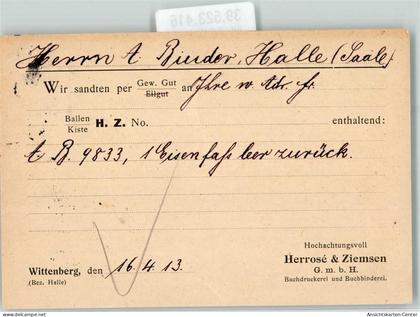 39.523.416
Herrn A. Binder, Halle (Saale).
Wir sandten per Gew. Gut an Ihre w. Adr. fr.
Eilgut
Ballen H. Z. No. enthaltend:
Kiste
A B. 9833, 1 Eisenfaß leer zurück.
Hochachtungsvoll
Wittenberg, den 16. 4. 13. Herrosé & Ziemsen
(Bez. Halle) G. m. b. H.
Buchdruckerei und Buchbinderei.
www.delcampe.net
Ansichtskarten-Center